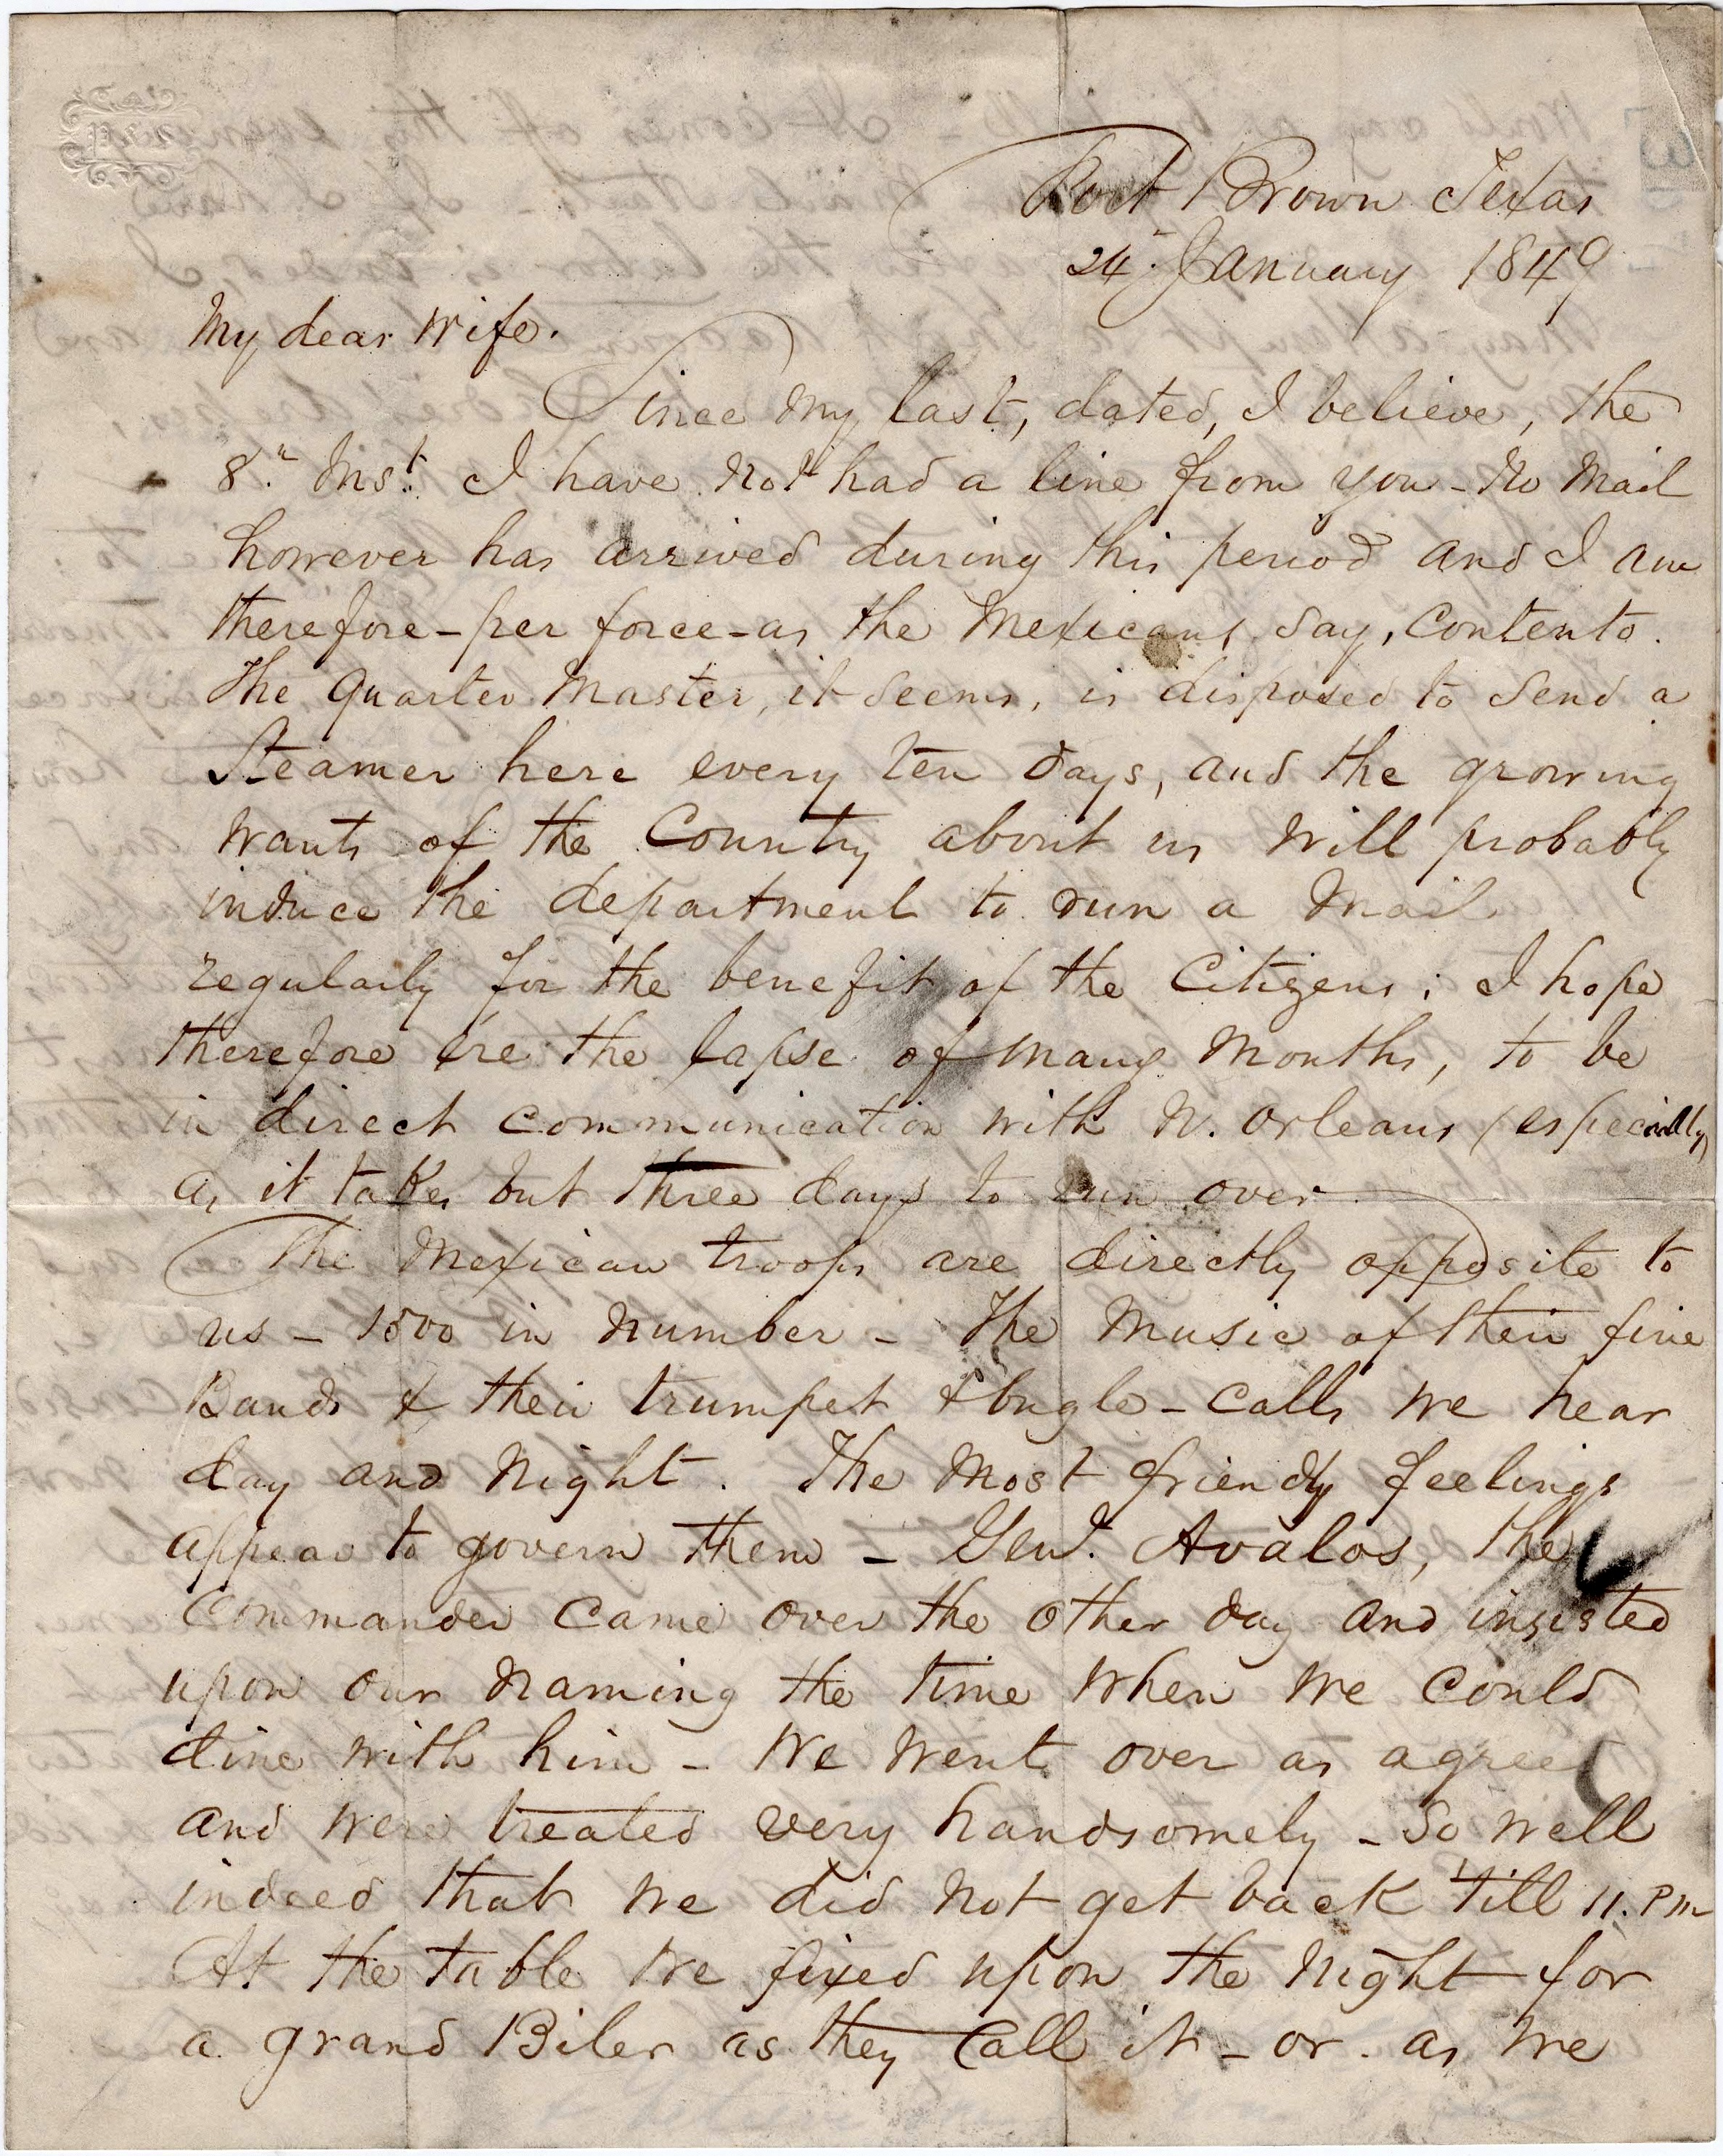 Fort Brown Texas
24th January 1849
My dear Wife.
Since my last, dated, I believe, the
8th Inst. I have not had a line from you - No Mail
however has arrived during this period and I am
therefore - per force - as the Mexicans say, Contento.
The Quarter Master, it seems, is disposed to send a
Steamer here every ten days, and the growing
wants of the Country about us will probably
induce the department to run a Mail
regularly for the benefit of the Citizens; I hope
therefore ere the lapse of many Months, to be
in direct communication with N. Orleans (especially
as it takes but three days to run over
The Mexican troops are directly opposite to
us - 1500 in number - The Music of their fine
Bands & their trumpet & bugle - calls we hear
day and night. The Most friendly feelings
appear to govern them - Genl. Avalos, the
Commander came over the other day and insisted
upon our naming the time when we could
dine with him - We went over as agreed
and were treated very handsomely - So well
indeed that we did not get back till 11. PM
At the table we fixed upon the night for
a grand Biler as they call it - or as we